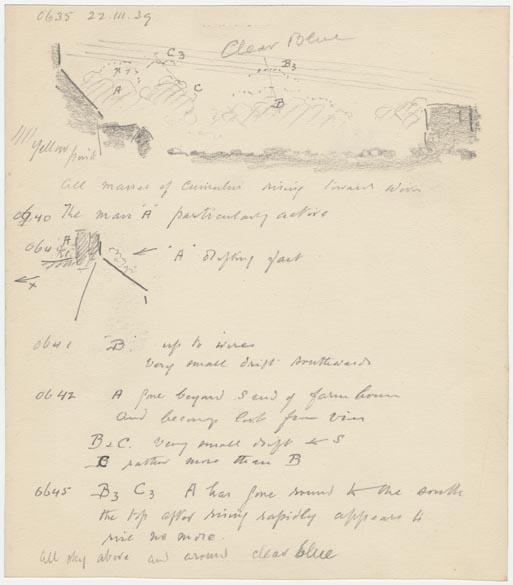 0635 22.III.39
Clear Blue
C3
B3
A
C
B
Yellow
pink
All masses of Cumulus rising toward wires
0640 The mass "A" particularly active
064 A
"A" drifting fast
x
0641 "B" up to wires
Very small drift southwards
0642 A gone beyond S end of farm house
and becomes lost from view
B & C. Very small drift to S
C rather more than B
0645 B3 C3 A has gone round to the south
the top after rising rapidly appears to
rise no more.
All sky above and around clear blue